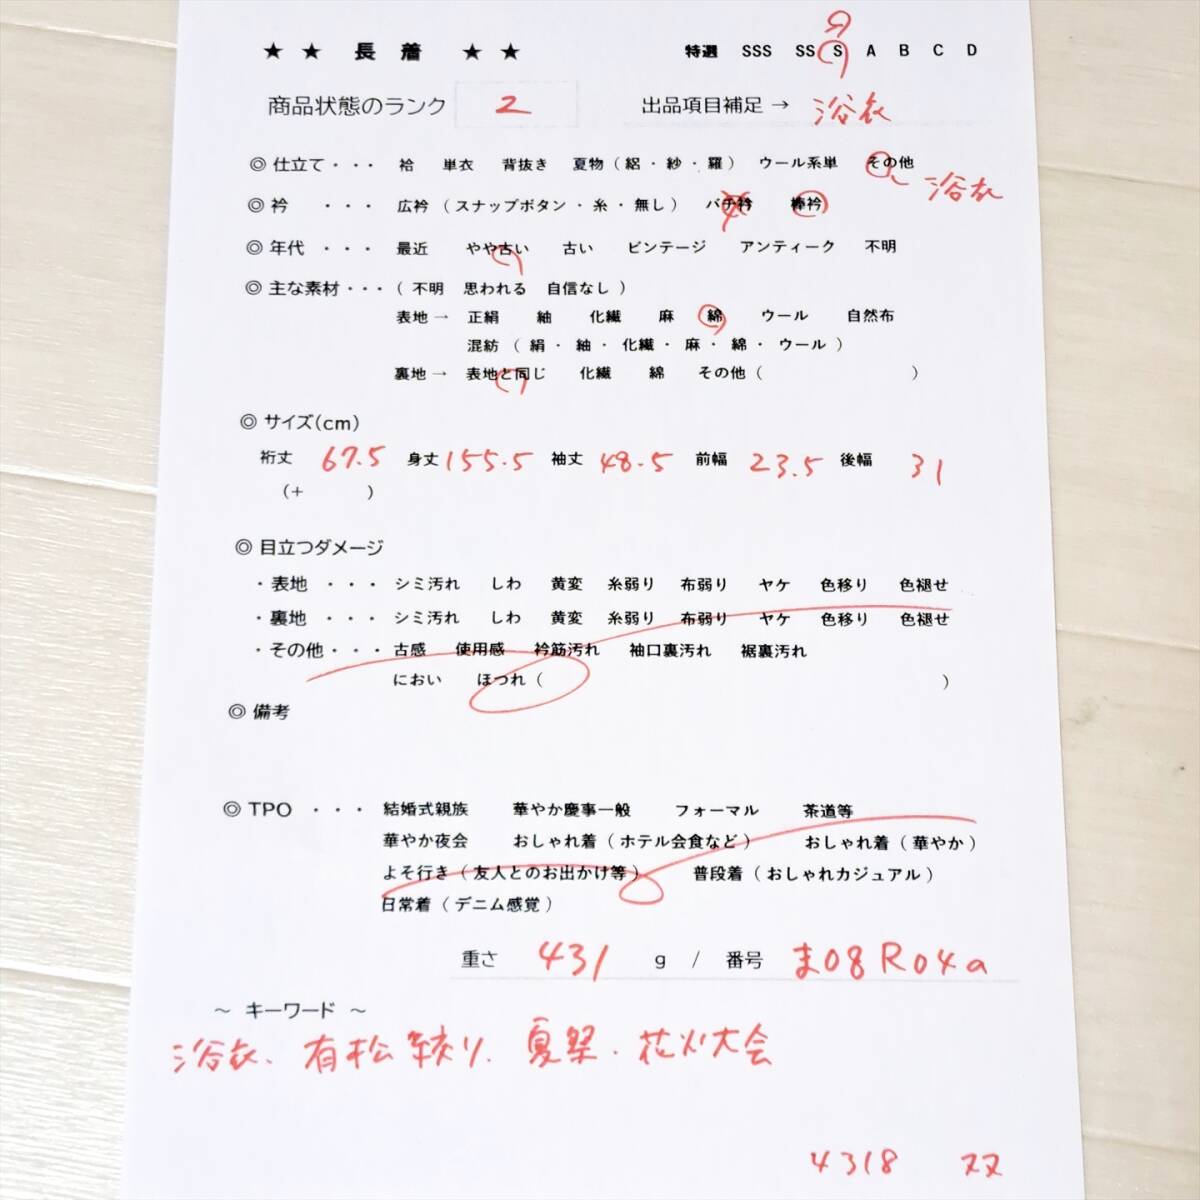 ★ ★ 長 着 ★ ★ 特選 SSS SS S A B C D
商品状態のランク 2 出品項目補足→ 浴衣
◎ 仕立て・・・ 袷 単衣 背抜き 夏物(絽・紗・羅) ウール系単 その他 浴衣
◎ 衿 ・・・ 広衿(スナップボタン・糸・無し) バチ衿 棒衿
◎ 年代 ・・・ 最近 やや古い 古い ビンテージ アンティーク 不明
◎ 主な素材・・・(不明 思われる 自信なし)
表地→ 正絹 紬 化繊 麻 綿 ウール 自然布
混紡(絹・紬・化繊・麻・綿・ウール)
裏地→ 表地と同じ 化繊 綿 その他( )
◎ サイズ(cm)
裄丈 67.5 身丈 155.5 袖丈 48.5 前幅 23.5 後幅 31
(+ )
◎ 目立つダメージ
・表地 ・・・ シミ汚れ しわ 黄変 糸弱り 布弱り ヤケ 色移り 色褪せ
・裏地 ・・・ シミ汚れ しわ 黄変 糸弱り 布弱り ヤケ 色移り 色褪せ
・その他・・・ 古感 使用感 衿筋汚れ 袖口裏汚れ 裾裏汚れ
におい ほつれ( )
◎ 備考
◎ TPO ・・・ 結婚式親族 華やか慶事一般 フォーマル 茶道等
華やか夜会 おしゃれ着(ホテル会食など) おしゃれ着(華やか)
よそ行き(友人とのお出かけ等) 普段着(おしゃれカジュアル)
日常着(デニム感覚)
重さ 431 g / 番号 ま08R04a
～ キーワード ～
浴衣、有松絞り、夏祭、花火大会
4318